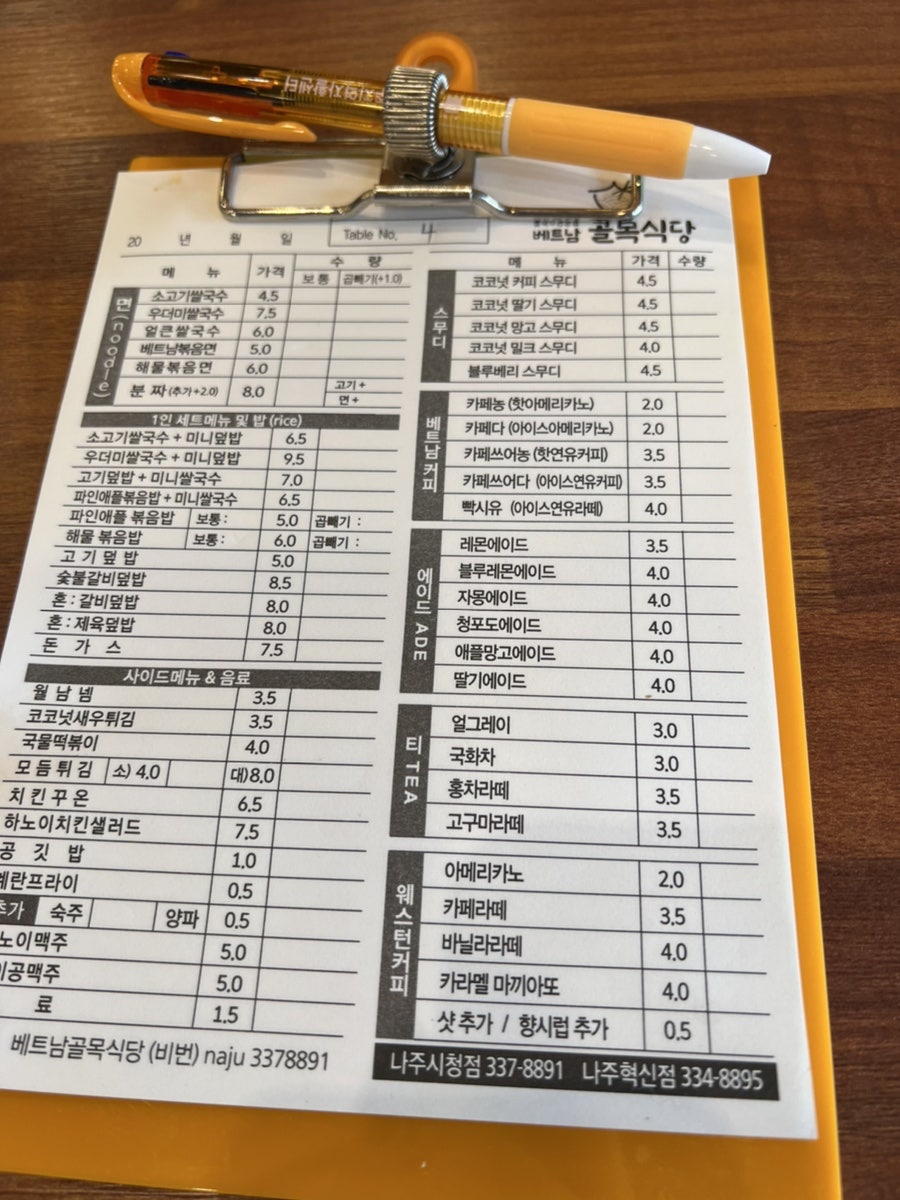 지역자활센터
20 년 월 일
Table No. 4
베트남 골목식당
메 뉴 가격 수 량
보통 곱빼기(+1.0)
면(noodle)
소고기쌀국수 4.5
우더미쌀국수 7.5
얼큰쌀국수 6.0
베트남볶음면 5.0
해물볶음면 6.0
분 짜(추가+2.0) 8.0 고기 +
면 +
1인 세트메뉴 및 밥 (rice)
소고기쌀국수 + 미니덮밥 6.5
우더미쌀국수 + 미니덮밥 9.5
고기덮밥 + 미니쌀국수 7.0
파인애플볶음밥 + 미니쌀국수 6.5
파인애플 볶음밥 보통 : 5.0 곱빼기 :
해물 볶음밥 보통 : 6.0 곱빼기 :
고 기 덮 밥 5.0
숯불갈비덮밥 8.5
혼 : 갈비덮밥 8.0
혼 : 제육덮밥 8.0
돈 가 스 7.5
사이드메뉴 & 음료
월 남 넴 3.5
코코넛새우튀김 3.5
국물떡볶이 4.0
모듬튀김 소) 4.0 대)8.0
치킨꾸온 6.5
하노이치킨샐러드 7.5
공 깃 밥 1.0
계란프라이 0.5
추가 숙주 양파 0.5
노이맥주 5.0
이공맥주 5.0
료 1.5
베트남골목식당 (비번) naju 3378891
메 뉴 가격 수량
스무디
코코넛 커피 스무디 4.5
코코넛 딸기 스무디 4.5
코코넛 망고 스무디 4.5
코코넛 밀크 스무디 4.0
블루베리 스무디 4.5
베트남커피
카페농 (핫아메리카노) 2.0
카페다 (아이스아메리카노) 2.0
카페쓰어농 (핫연유커피) 3.5
카페쓰어다 (아이스연유커피) 3.5
빡시유 (아이스연유라떼) 4.0
에이드 ADE
레몬에이드 3.5
블루레몬에이드 4.0
자몽에이드 4.0
청포도에이드 4.0
애플망고에이드 4.0
딸기에이드 4.0
티 TEA
얼그레이 3.0
국화차 3.0
홍차라떼 3.5
고구마라떼 3.5
웨스턴커피
아메리카노 2.0
카페라떼 3.5
바닐라라떼 4.0
카라멜 마끼아또 4.0
샷 추가 / 향시럽 추가 0.5
나주시청점 337-8891 나주혁신점 334-8895